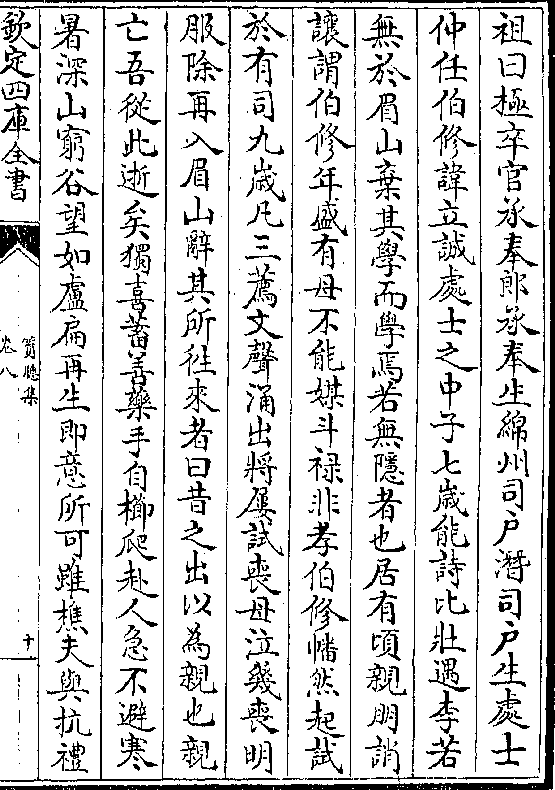 祖曰極卒官承奉郎承奉生綿州司户潛司户生處士
仲任伯修諱立誠處士之中子七歲能詩比壯遇李若
無於眉山棄其學而學焉若無隱者也居有頃親朋誚
讓謂伯修年盛有母不能媒斗禄非孝伯修幡然起試
於有司九歲凡三薦文聲涌出將屢試喪母泣幾喪明
服除再入眉山辭其所徃來者曰昔之出以為親也親
亡吾從此逝矣獨喜蓄善藥手自櫛爬赴人急不避寒
暑深山窮谷望如盧扁再生即意所可雖樵夫與抗禮
欽定四庫全書
卷八
十